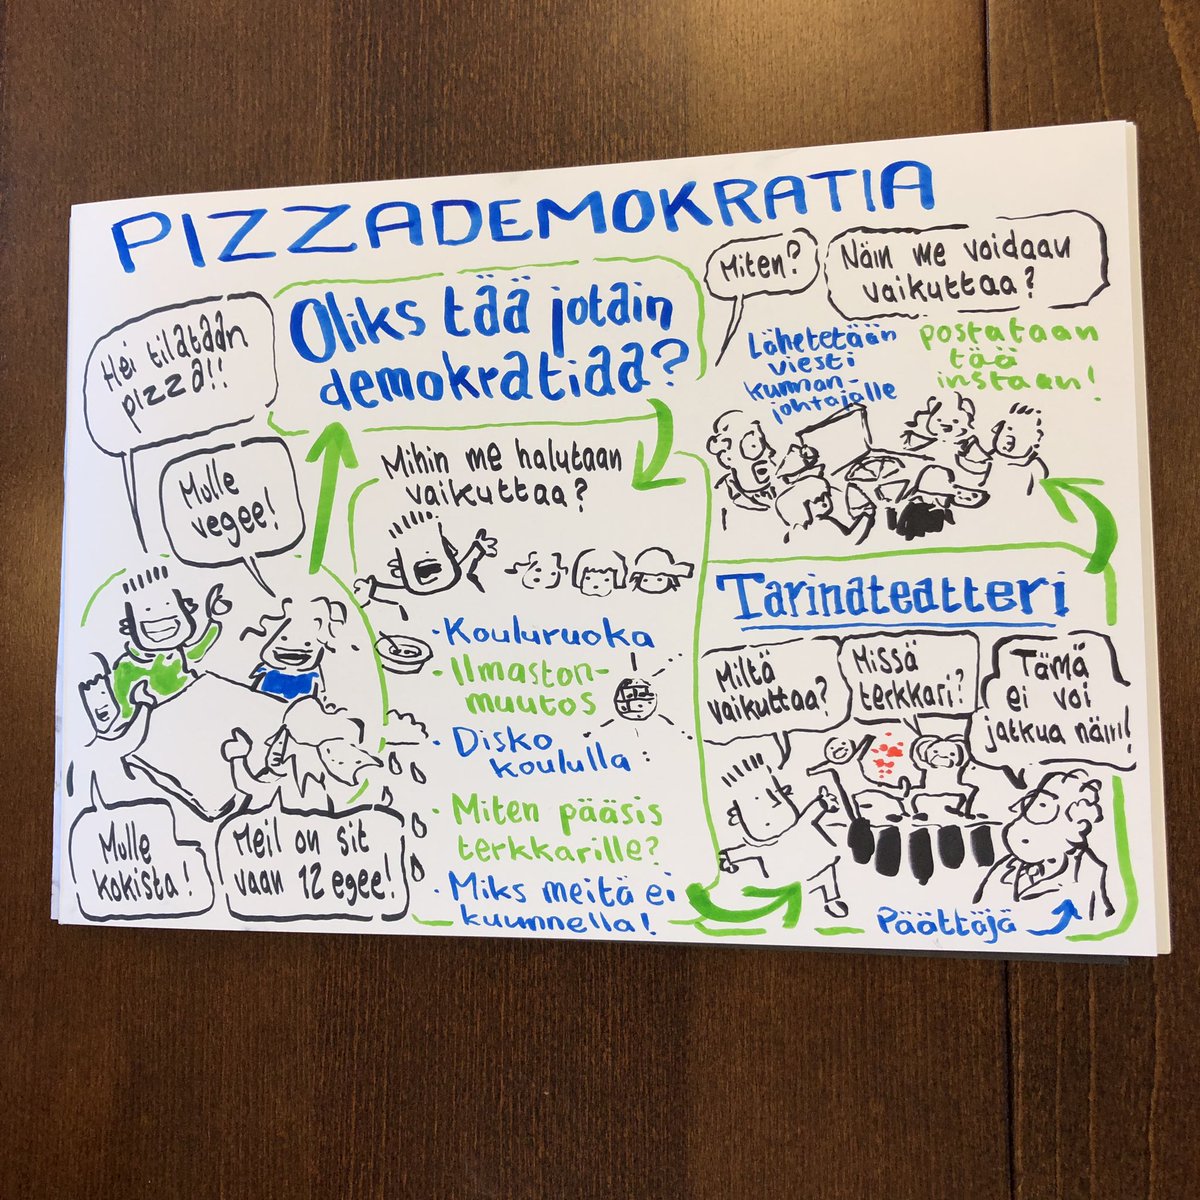 PIZZADEMOKRATIA
Hei tilataan
pizza!!
Mulle
vegee!
Mulle
kokista!
Meil on sit
vaan 12 egee!
Oliks tää jotain
demokratiaa?
Mihin me halutaan
vaikuttaa?
· Kouluruoka
· Ilmaston-
muutos
· Disko
koululla
· Miten pääsis
terkkarille?
· Miks meitä ei
kuunnella!
Tarinateatteri
Miltä
vaikuttaa?
Missä
terkkari?
Tämä
ei voi
jatkua näin!
Päättäjä
Miten?
Näin me voidaan
vaikuttaa?
Lähetetään
viesti
kunnan-
johtajalle
postataan
tää
instaan!